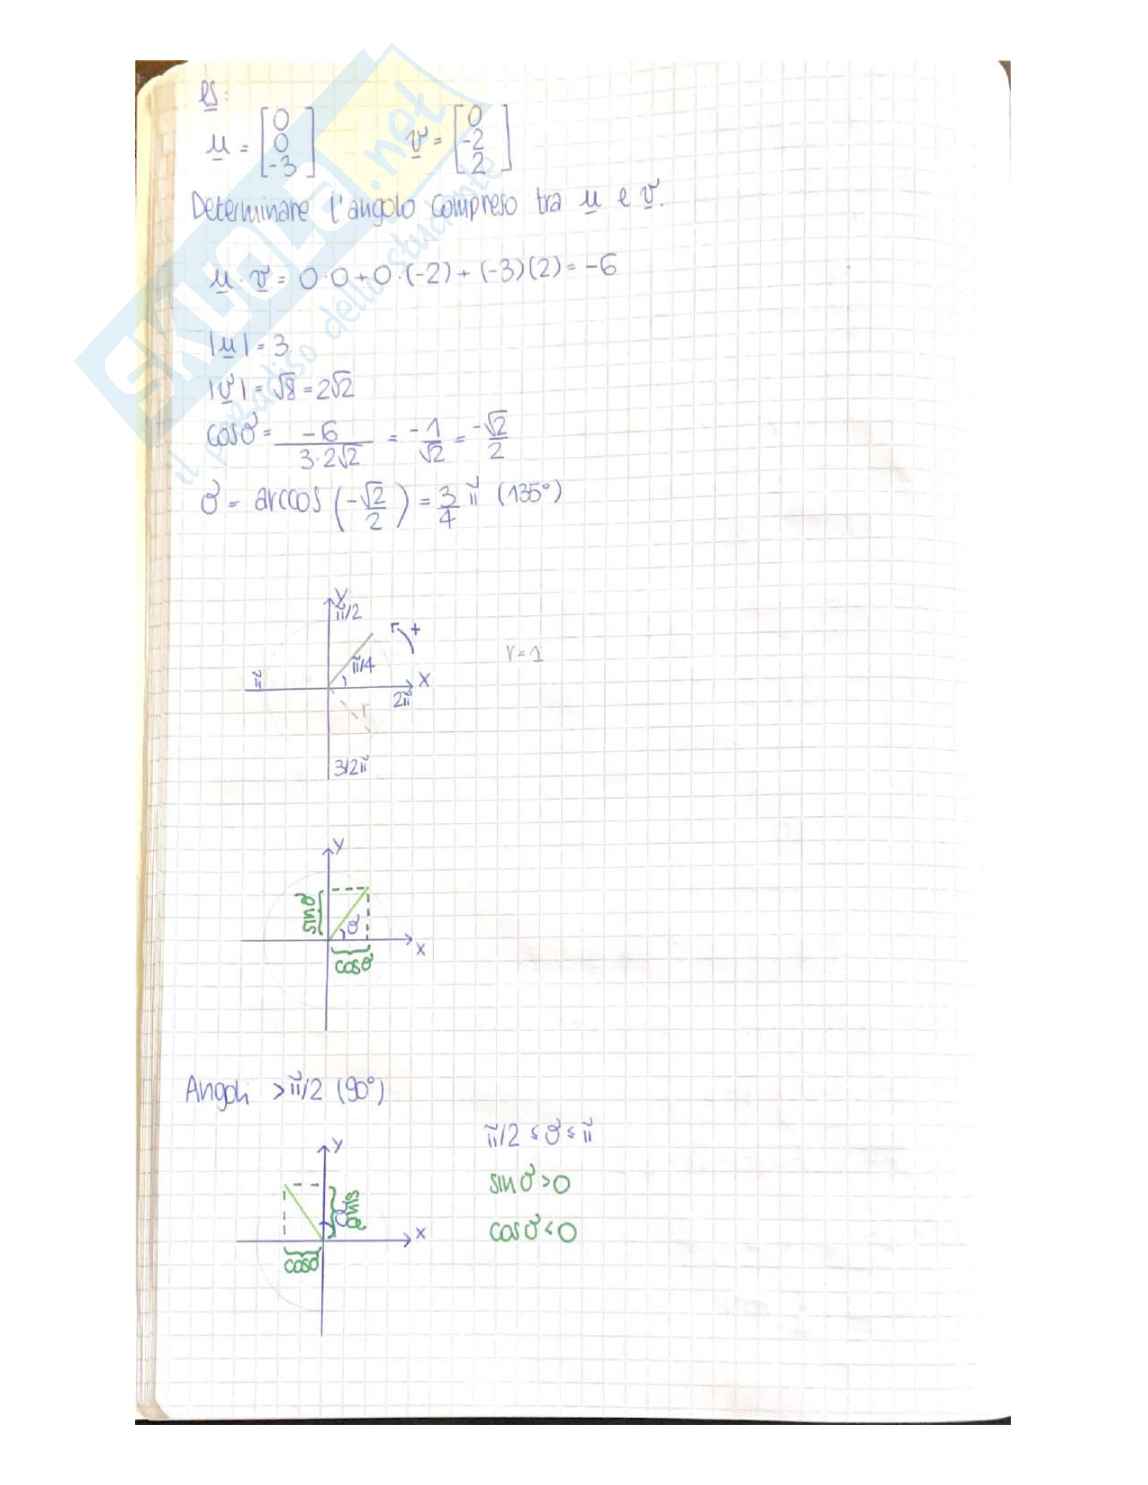 es:
u = [0 0 -3] v = [0 -2 2]
Determinare l'angolo compreso tra u e v.
u · v = 0·0+0·(-2)+(-3)(2)=-6
|u| = 3
|v| = √8 = 2√2
cosϑ = -6/(3·2√2) = -1/√2 = -√2/2
ϑ = arccos(-√2/2) = 3/4 π (135°)
y
π/2
+
π/4
r=1
π
x
2π
r
3/2π
y
sinϑ
ϑ
x
cosϑ
Angoli >π/2 (90°)
π/2 ≤ ϑ ≤ π
y
sinϑ>0
sinϑ
ϑ
cosϑ<0
x
cosϑ
SKUOLA.net
il paradiso dello studente